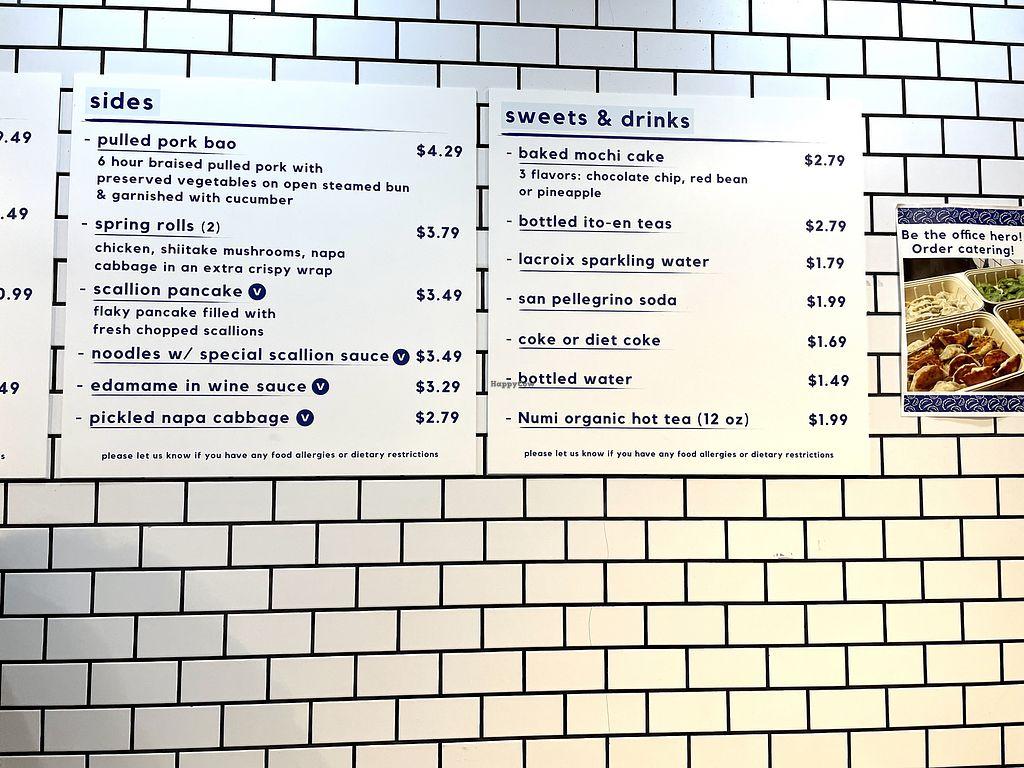 9.49
.49
0.99
49
s
sides
- pulled pork bao $4.29
6 hour braised pulled pork with
preserved vegetables on open steamed bun
& garnished with cucumber
- spring rolls (2) $3.79
chicken, shiitake mushrooms, napa
cabbage in an extra crispy wrap
- scallion pancake V $3.49
flaky pancake filled with
fresh chopped scallions
- noodles w/ special scallion sauce V $3.49
- edamame in wine sauce V $3.29
- pickled napa cabbage V $2.79
please let us know if you have any food allergies or dietary restrictions
sweets & drinks
- baked mochi cake $2.79
3 flavors: chocolate chip, red bean
or pineapple
- bottled ito-en teas $2.79
- lacroix sparkling water $1.79
- san pellegrino soda $1.99
- coke or diet coke $1.69
- bottled water $1.49
- Numi organic hot tea (12 oz) $1.99
please let us know if you have any food allergies or dietary restrictions
HappyCow
Be the office hero!
Order catering!